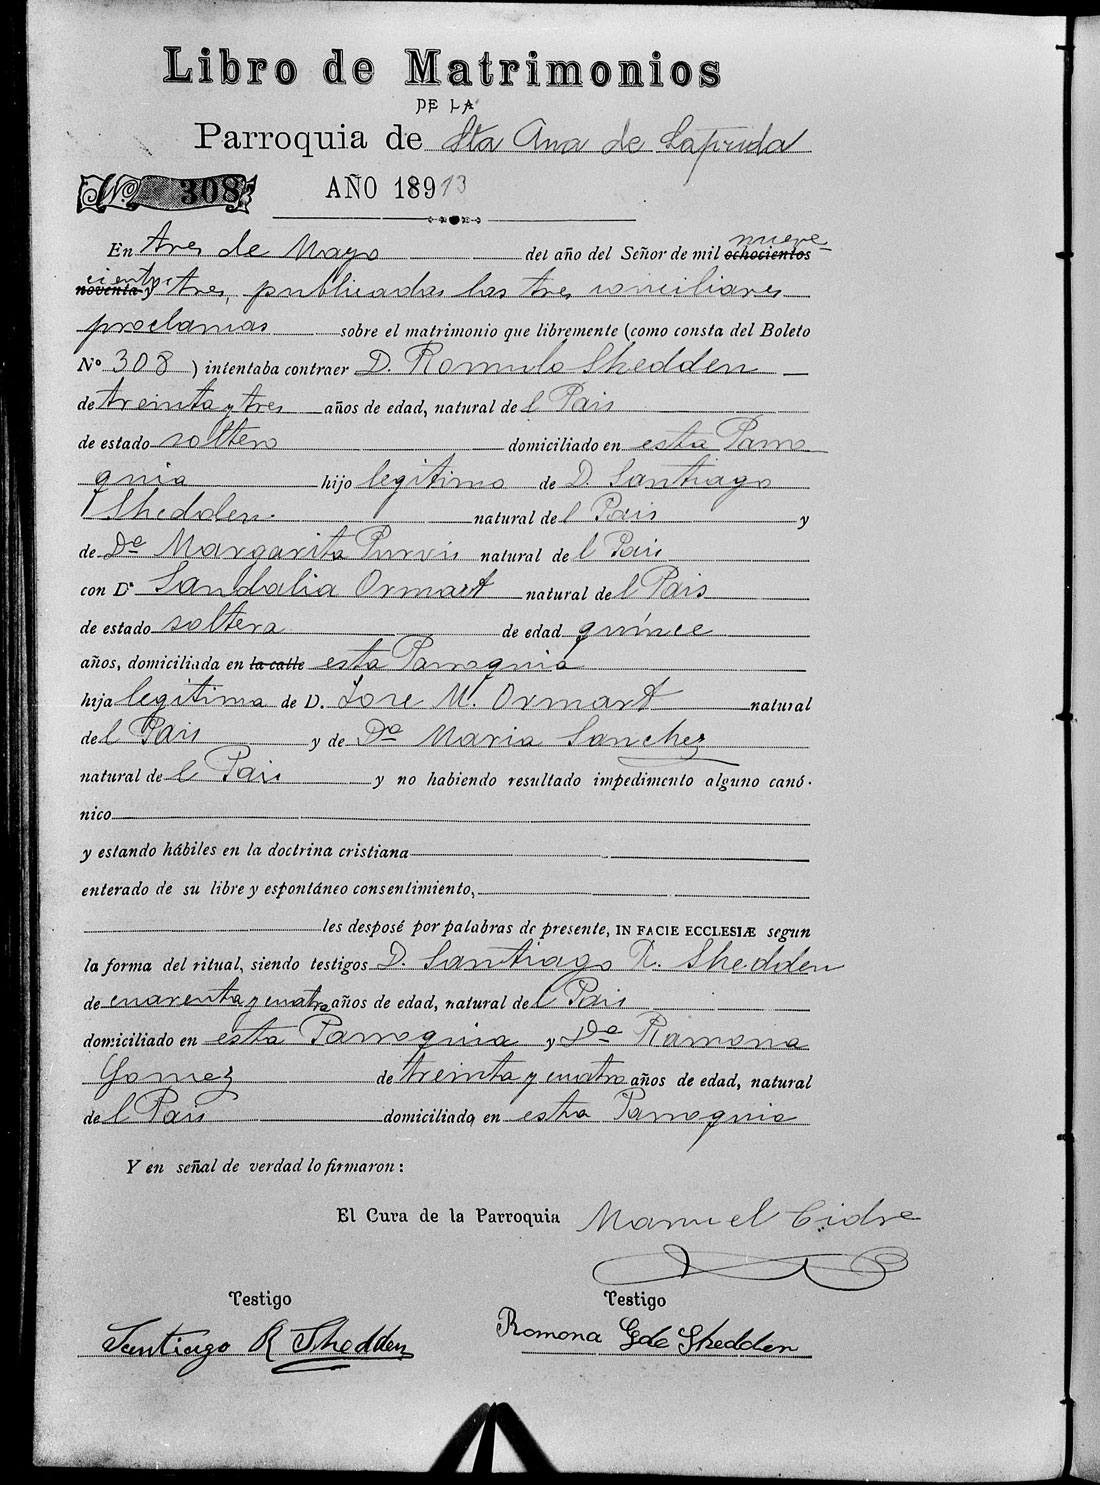 Libro de Matrimonios
DE LA
Parroquia de Sta Ana de Laprida
No. 308 AÑO 18913
En tres de Mayo del año del Señor de mil ochocientos nueve
noventa y cientos tres, publicadas las tres conciliares
proclamas sobre el matrimonio que libremente (como consta del Boleto
Nº 308 ) intentaba contraer D. Romulo Shedden
de treinta y tres años de edad, natural del Pais
de estado soltero domiciliado en esta Parro
quia hijo legitimo de D. Santiago
Shedden natural del Pais y
de Dª Margarita Purvis natural del Pais
con Dª Sandalia Ormart natural del Pais
de estado soltera de edad quince
años, domiciliada en la calle esta Parroquia
hija legitima de D. Jose M. Ormart natural
del Pais y de Dª Maria Sanchez
natural del Pais y no habiendo resultado impedimento alguno canó-
nico
y estando hábiles en la doctrina cristiana
enterado de su libre y espontáneo consentimiento,
les desposé por palabras de presente, IN FACIE ECCLESIÆ segun
la forma del ritual, siendo testigos D. Santiago R. Shedden
de cuarenta y cuatro años de edad, natural del Pais
domiciliado en esta Parroquia y Dª Ramona
Gomez de treinta y cuatro años de edad, natural
del Pais domiciliada en esta Parroquia
Y en señal de verdad lo firmaron:
El Cura de la Parroquia Manuel Cidre
Testigo Testigo
Santiago R Shedden Romona G de Shedden